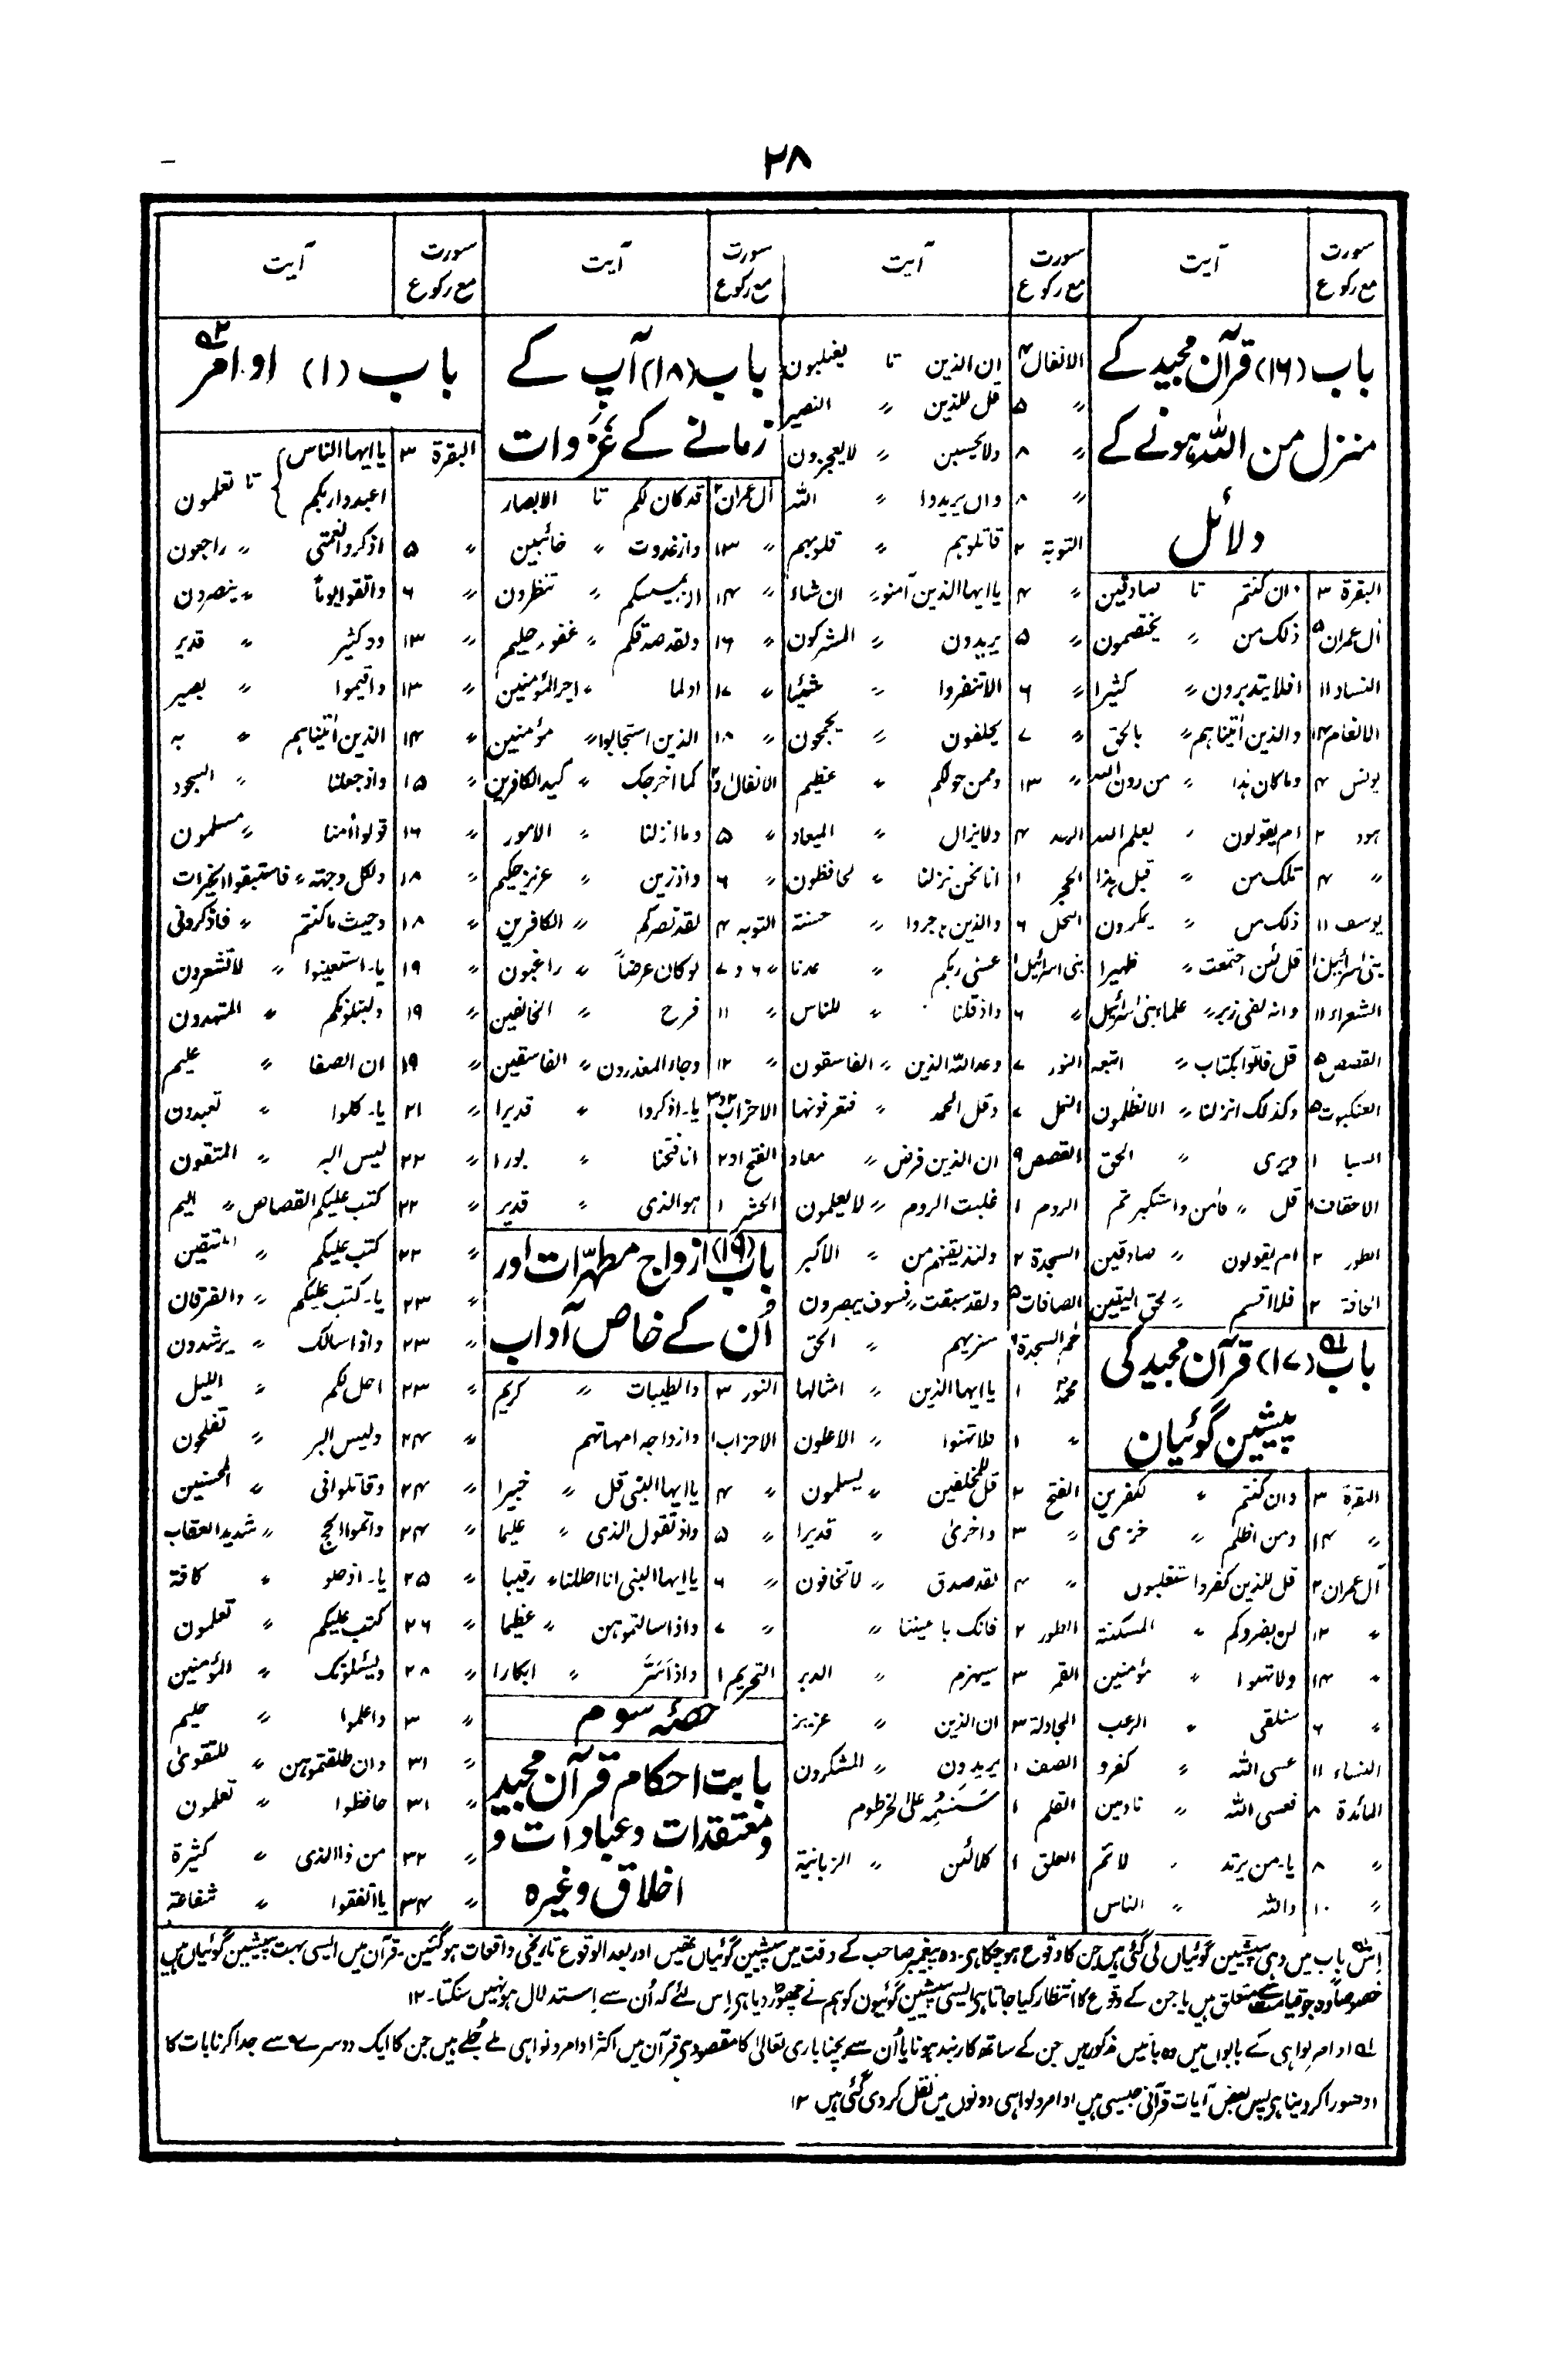 ۲۸
سورت مع رکوع | آیت
باب (۱۶) قرآن مجید کے
منزل من اللہ ہونے کے
دلائل
البقرة ۳ | ان کنتم تا صادقین
آل عمران ۵ | ذلک من 〃 یختصمون
النساء ۱۱ | افلا یتدبرون 〃 کثیرا
الانعام ۱۴ | والذین اٰتیناہم 〃 بالحق
یونس ۴ | وماکان ہذا 〃 من دون اللہ
ہود ۲ | ام یقولون 〃 بعلم اللہ
〃 ۴ | تلک من 〃 قبل ہذا
یوسف ۱۱ | ذلک من 〃 یمکرون
بنی اسرائیل | قل لئن اجتمعت 〃 ظہیرا
الشعراء ۱۱ | وانہ لفی زبر 〃 علماء بنی اسرائیل
القصص ۵ | قل فاتوا بکتاب 〃 اتبعہ
العنکبوت ۵ | وکذلک انزلنا 〃 الا الظلمون
السبا ۱ | ویری 〃 الحق
الاحقاف ۱ | قل 〃 فاٰمن واستکبرتم
الطور ۲ | ام یقولون 〃 صادقین
الحاقة ۲ | فلا اقسم 〃 لحق الیقین
باب (۱۷)۹۱ قرآن مجید کی
پیشین گوئیان
البقرة ۳ | وان کنتم 〃 للکفرین
〃 ۱۴ | ومن اظلم 〃 خزی
آل عمران ۲ | قل للذین کفروا ستغلبون
〃 ۱۲ | لن یضروکم 〃 المسکنة
〃 ۱۴ | ولا تہنوا 〃 مؤمنین
〃 ۶ | سنلقی 〃 الرعب
النساء ۱۱ | عسی اللہ 〃 کفرو
المائدة ۸ | فعسی اللہ 〃 نادمین
〃 ۸ | یا۔من یرتد 〃 لائم
〃 ۱۰ | واللہ 〃 الناس
سورت مع رکوع | آیت
الانفال ۴ | ان الذین تا یغلبون
〃 ۵ | قل للذین 〃 النصیر
〃 ۸ | ولا یحسبن 〃 لا یعجزون
〃 ۸ | وان یریدوا 〃 اللہ
التوبة ۲ | قاتلوہم 〃 قلوبہم
〃 ۴ | یا ایہا الذین آمنو 〃 ان شاء
〃 ۵ | یریدون 〃 المشرکون
〃 ۶ | الا تنفروا 〃 شیئا
〃 ۷ | یحلفون 〃 یجمحون
〃 ۱۳ | وممن حولکم 〃 عظیم
الرعد ۴ | ولا یزال 〃 المیعاد
الحجر ۱ | انا نحن نزلنا 〃 لحافظون
النحل ۶ | والذین ہاجروا 〃 حسنة
بنی اسرائیل ۱ | عسیٰ ربکم 〃 عدنا
〃 ۶ | واذ قلنا 〃 للناس
النور ۷ | وعد اللہ الذین 〃 الفاسقون
النمل ۷ | وقل الحمد 〃 فتعرفونہا
القصص ۹ | ان الذین فرض 〃 معاد
الروم ۱ | غلبت الروم 〃 لا یعلمون
السجدة ۲ | ولنذیقنہم من 〃 الاکبر
الصافات ۵ | ولقد سبقت 〃 فسوف یبصرون
حم السجدة ۶ | سنریہم 〃 الحق
محمد ۱ | یا ایہا الذین 〃 امثالہا
〃 ۱ | فلا تہنوا 〃 الاعلون
الفتح ۲ | قل للمخلفین 〃 یسلمون
〃 ۳ | واخریٰ 〃 قدیرا
〃 ۴ | لقد صدق 〃 لا تخافون
الطور ۲ | فانک باعیننا 〃
القمر ۳ | سیہزم 〃 الدبر
المجادلة ۳ | ان الذین 〃 عزیز
الصف ۱ | یریدون 〃 المشرکون
القلم ۱ | سَنَسِمُہٗ علی الخرطوم
العلق ۱ | کلا لئن 〃 الزبانیة
سورت مع رکوع | آیت
باب (۱۸) آپ کے
زمانے کے غزوات
آل عمران ۲ | قد کان لکم تا الابصار
〃 ۱۳ | واذ غدوت 〃 خائبین
〃 ۱۴ | ان یمسسکم 〃 تنظرون
〃 ۱۶ | ولقد صدقکم 〃 غفور حلیم
〃 ۱۷ | اولما 〃 اجر المؤمنین
〃 ۱۸ | الذین استجابوا 〃 مؤمنین
الانفال ۱و۲ | کما اخرجک 〃 کید الکافرین
〃 ۵ | وما انزلنا 〃 الامور
〃 ۶ | واذ زین 〃 عزیز حکیم
التوبہ ۴ | لقد نصرکم 〃 الکافرین
〃 ۶ و ۷ | لو کان عرضاً 〃 راغبون
〃 ۱۱ | فرح 〃 الخالفین
〃 ۱۲ | وجاء المعذرون 〃 الفاسقین
الاحزاب ۲و۳ | یا۔اذکروا 〃 قدیرا
الفتح ۱و۲ | انا فتحنا 〃 بورا
الحشر ۱ | ہو الذی 〃 قدیر
باب (۱۹) ازواج مطہّرات اور
اُن کے خاص آداب
النور ۳ | والطیبات 〃 کریم
الاحزاب ۱ | وازواجہ امہاتہم
〃 ۴ | یا ایہا النبی قل 〃 خبیرا
〃 ۵ | واذ تقول الذی 〃 علیما
〃 ۶ | یا ایہا النبی انا احللنا 〃 رقیبا
〃 ۷ | واذا سالتموہن 〃 عظیما
التحریم ۱ | واذ اَسَرَّ 〃 ابکارا
حصّہ سوم
بابت احکام قرآن مجید
ومعتقدات وعبادات و
اخلاق وغیرہ
سورت مع رکوع | آیت
باب (۱) اوامر ۹۲
البقرة ۳ | یا ایہا الناس
اعبدوا ربکم } تا تعلمون
〃 ۵ | اذکروا نعمتی 〃 راجعون
〃 ۶ | واتقوا یوماً 〃 ینصرون
〃 ۱۳ | ود کثیر 〃 قدیر
〃 ۱۳ | واقیموا 〃 بصیر
〃 ۱۴ | الذین اٰتیناہم 〃 بہ
〃 ۱۵ | واذ جعلنا 〃 السجود
〃 ۱۶ | قولوا اٰمنا 〃 مسلمون
〃 ۱۸ | ولکل وجہة 〃 فاستبقوا الخیرات
〃 ۱۸ | وحیث ماکنتم 〃 فاذکرونی
〃 ۱۹ | یا۔استعینوا 〃 لا تشعرون
〃 ۱۹ | ولنبلونکم 〃 المہتدون
〃 ۱۹ | ان الصفا 〃 علیم
〃 ۲۱ | یا۔کلوا 〃 تعبدون
〃 ۲۲ | لیس البر 〃 المتقون
〃 ۲۲ | کتب علیکم القصاص 〃 الیم
〃 ۲۲ | کتب علیکم 〃 المتقین
〃 ۲۳ | یا۔کتب علیکم 〃 والفرقان
〃 ۲۳ | واذا سالک 〃 یرشدون
〃 ۲۳ | احل لکم 〃 اللیل
〃 ۲۴ | ولیس البر 〃 تفلحون
〃 ۲۴ | وقاتلوا فی 〃 المحسنین
〃 ۲۴ | واتموا الحج 〃 شدید العقاب
〃 ۲۵ | یا۔ادخلو 〃 کافة
〃 ۲۶ | کتب علیکم 〃 تعلمون
〃 ۲۸ | ویسئلونک 〃 المؤمنین
〃 ۳ | واعلموا 〃 حلیم
〃 ۳۱ | وان طلقتموہن 〃 للتقویٰ
〃 ۳۱ | حافظوا 〃 تعلمون
〃 ۳۲ | من ذا الذی 〃 کثیرة
〃 ۳۴ | یا انفقوا 〃 شفاعة
۹۱ اِس باب میں وہی پیشین گوئیاں لی گئی ہیں جن کا وقوع ہوچکا ہی۔ وہ پیغمبر صاحب کے وقت میں پیشین گوئیاں تھیں اور بعد الوقوع تاریخی واقعات ہوگئین۔ قرآن میں ایسی بہت پیشین گوئیاں ہیں
خصوصاً وہ جو قیامت سے متعلق ہیں یا جن کے وقوع کا انتظار کیا جاتا ہی ایسی پیشین گوئیون کو ہم نے چھوڑ دیا ہی اِس لئے کہ اُن سے اِستدلال ہو نہیں سکتا۔ ۱۲
۹۲ اوامر ونواہی کے بابوں میں وہ باتیں مذکور ہیں جن کے ساتھ کاربند ہونا یا اُن سے بچنا باری تعالیٰ کا مقصود ہی قرآن میں اکثر اوامر ونواہی ملے جُلے ہیں جن کا ایک دوسرے سے جدا کرنا بات کا
ادھورا کر دینا ہی پس بعض آیات قرآنی جیسی ہیں اوامر ونواہی دونوں میں نقل کر دی گئی ہیں ۱۲